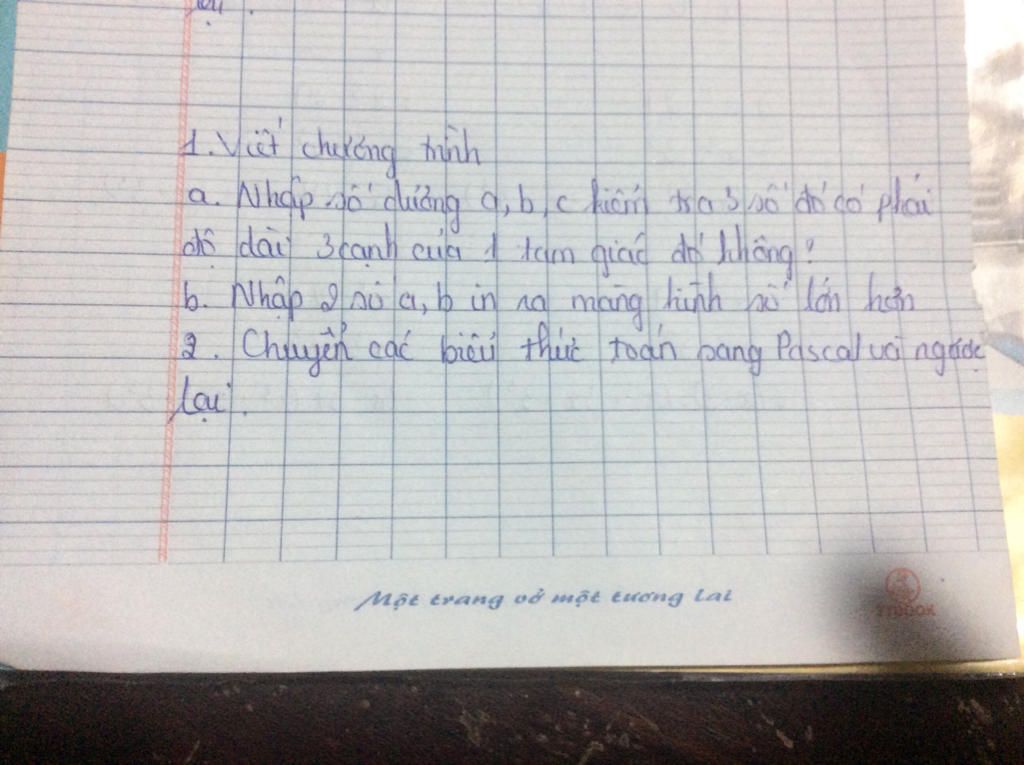 lại.
1. Viết chương trình
a. Nhập số dương a, b, c kiểm tra 3 số đó có phải
độ dài 3 cạnh của 1 tam giác đó không?
b. Nhập 2 số a, b in ra màng hình số lớn hơn
2. Chuyển các biểu thức toán sang Pascal và ngược
lại.
Một trang vở một tương lai
TTBOOK